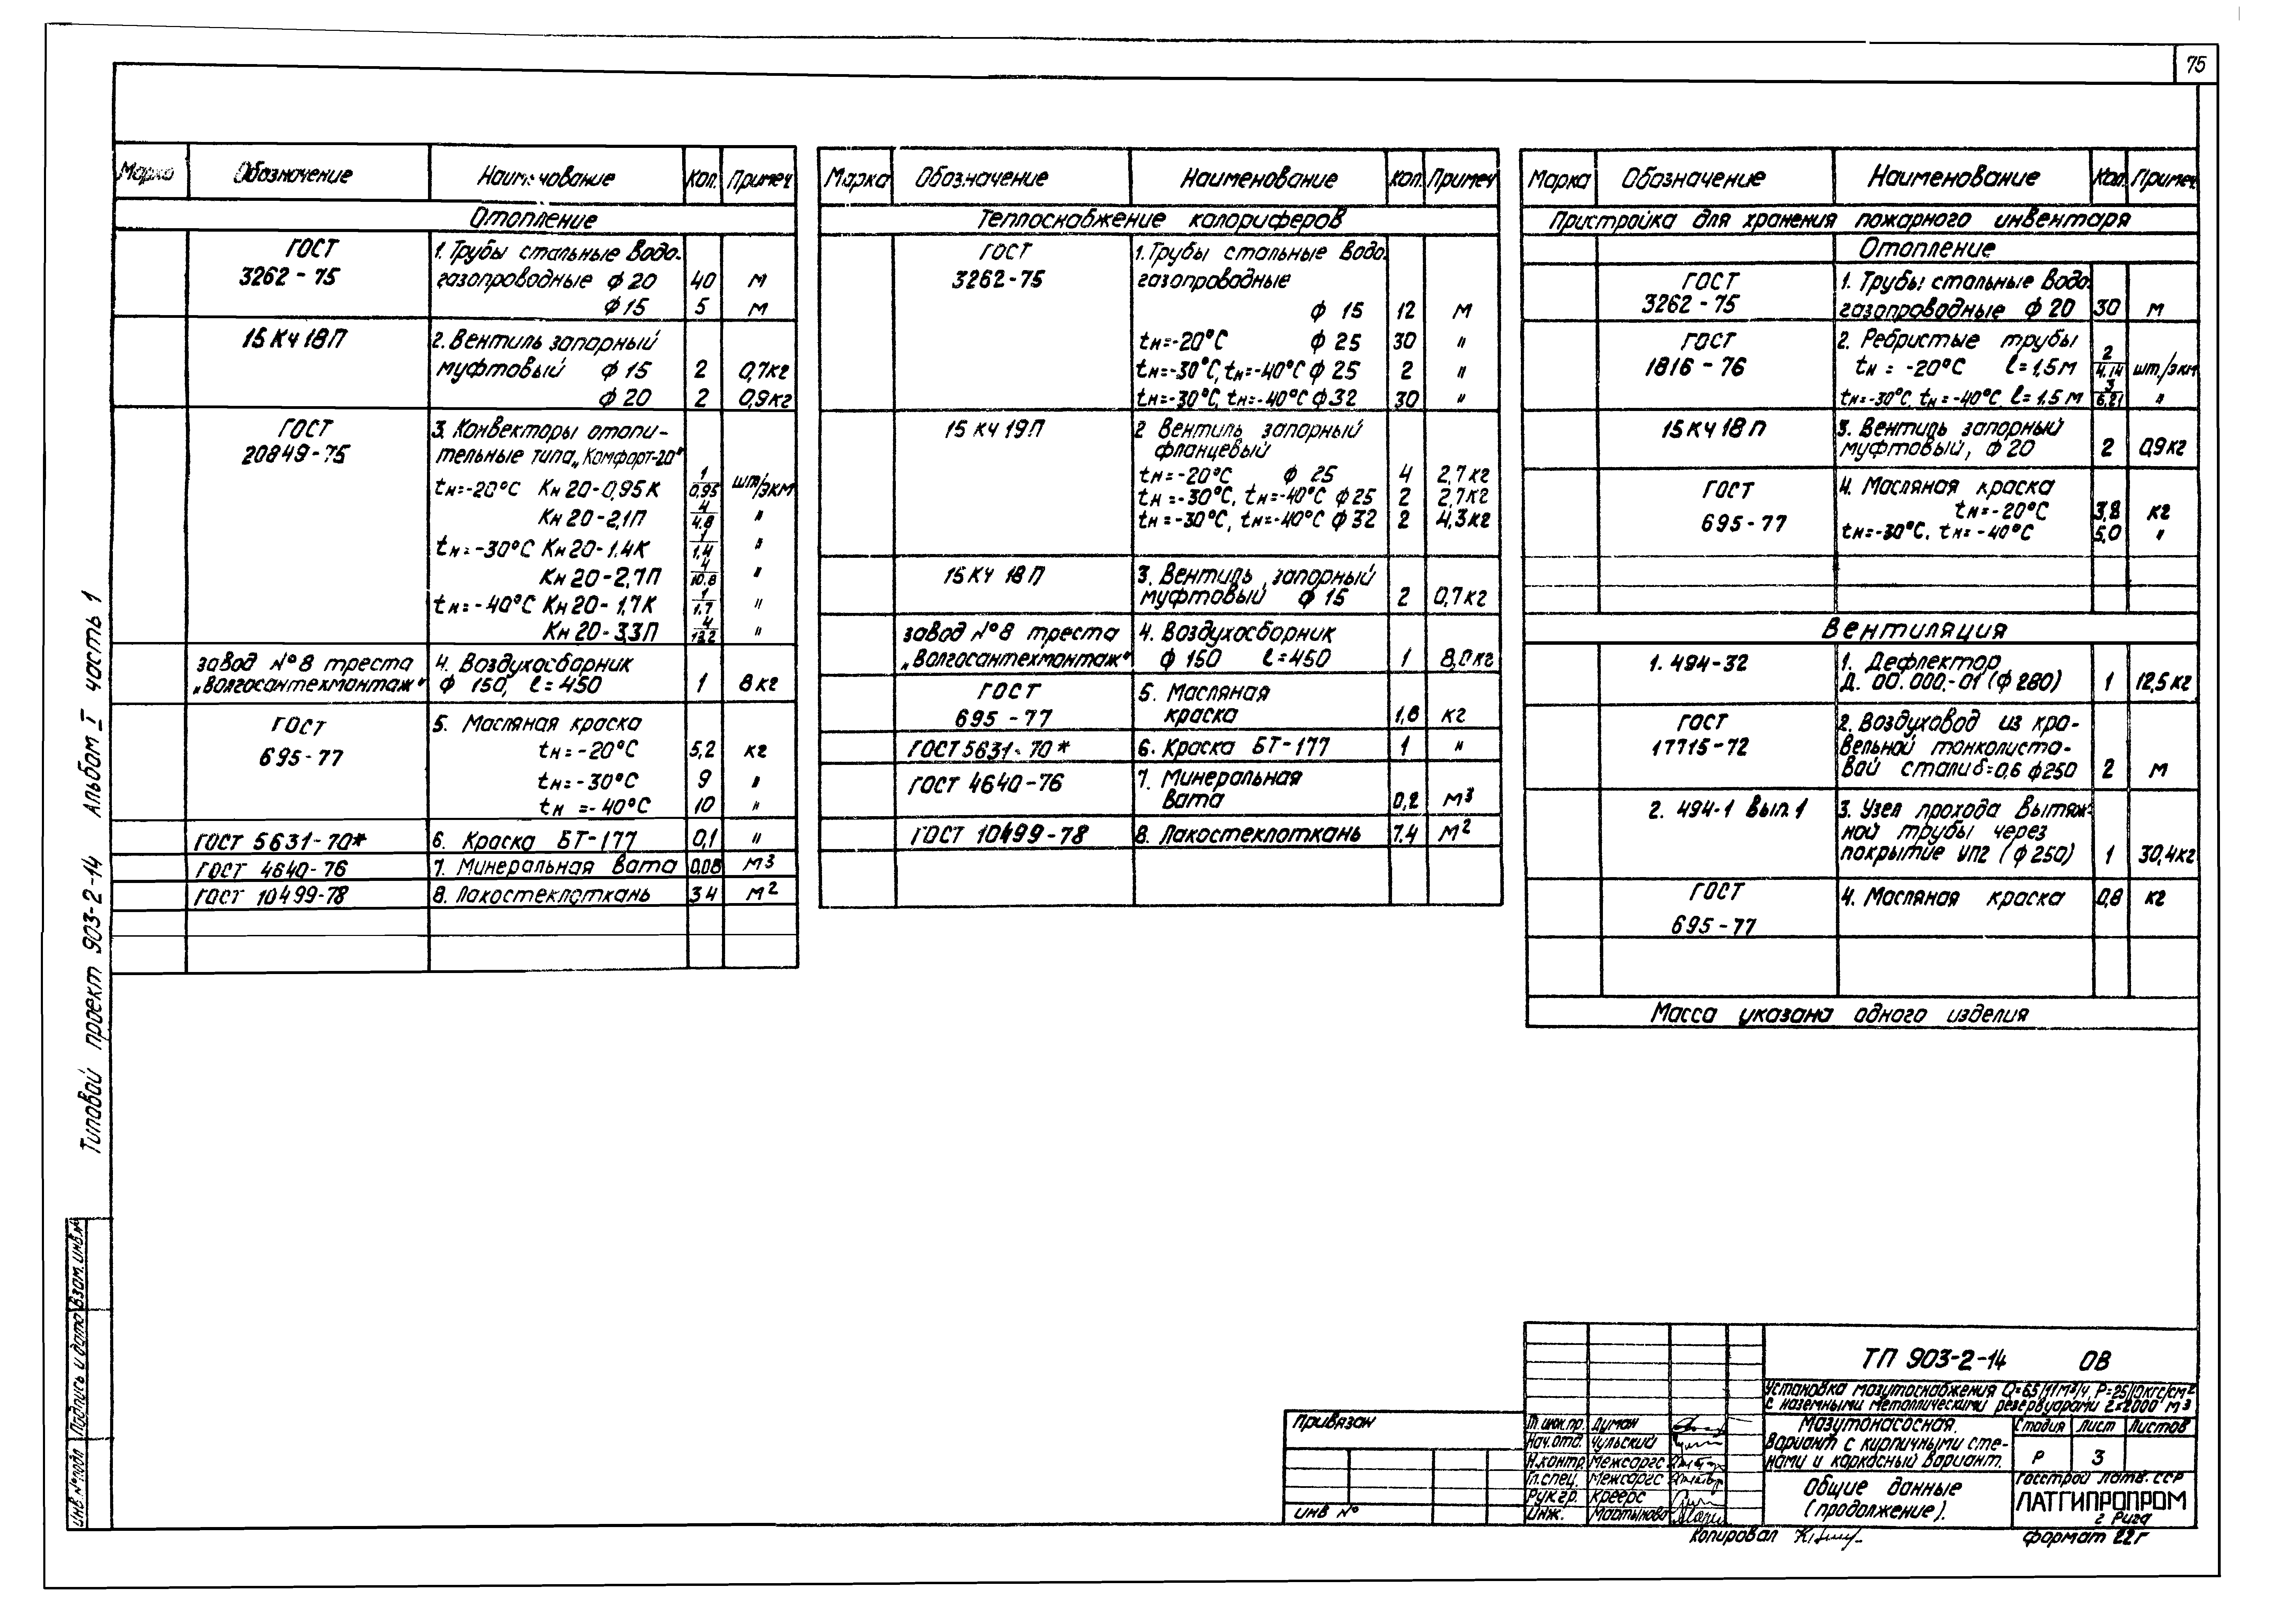 75
Марка Обозначение Наименование Кол. Примеч
Отопление
ГОСТ 3262-75 1. Трубы стальные водо-
газопроводные ф 20 40 м
ф 15 5 м
15 Кч 18 П 2. Вентиль запорный
муфтовый ф 15 2 0,7кг
ф 20 2 0,9кг
ГОСТ 20849-75 3. Конвекторы отопи-
тельные типа „Комфорт-20"
tн=-20°С Кн 20-0,95 К 1/0,95 шт/экм
Кн 20-2,1П 4/4.8 "
tн=-30°С Кн 20-1.4К 1/1,4 "
Кн 20-2,7П 4/10.8 "
tн=-40°С Кн 20-1,7К 1/1.7 "
Кн 20-3,3П 4/13.2 "
завод №8 треста 4. Воздухосборник
„Волгосантехмонтаж" ф 150, l=450 1 8 кг
ГОСТ 695-77 5. Масляная краска
tн=-20°С 5,2 кг
tн=-30°С 9 "
tн=-40°С 10 "
ГОСТ 5631-70* 6. Краска БТ-177 0,1 "
ГОСТ 4640-76 7. Минеральная вата 0,08 м3
ГОСТ 10499-78 8. Лакостеклоткань 3.4 м2
Марка Обозначение Наименование Кол. Примеч
Теплоснабжение калориферов
ГОСТ 3262-75 1. Трубы стальные водо.
газопроводные
ф 15 12 м
tн=-20°С ф 25 30 "
tн=-30°С, tн=-40°С ф 25 2 "
tн=-30°С, tн=-40°С ф 32 30 "
15 кч 19 П 2 Вентиль запорный
фланцевый
tн=-20°С ф 25 4 2,7кг
tн=-30°С, tн=-40°С ф 25 2 2,7кг
tн=-30°С, tн=-40°С ф 32 2 4,3кг
15 Кч 18 П 3. Вентиль запорный
муфтовый ф 15 2 0,7кг
завод №8 треста 4. Воздухосборник
„Волгосантехмонтаж" ф 150 l=450 1 8,0кг
ГОСТ 695-77 5. Масляная
краска 1,8 кг
ГОСТ 5631-70* 6. Краска БТ-177 1 "
ГОСТ 4640-76 7. Минеральная
вата 0,2 м3
ГОСТ 10499-78 8. Лакостеклоткань 7.4 м2
Марка Обозначение Наименование Кол. Примеч
Пристройка для хранения пожарного инвентаря
Отопление
ГОСТ 3262-75 1. Трубы стальные водо.
газопроводные ф 20 30 м
ГОСТ 1816-76 2. Ребристые трубы
tн=-20°С l=1,5м 2/4,14 шт./экм
tн=-30°С, tн=-40°С, l=1.5м 3/6,21 "
15 Кч 18 П 3. Вентиль запорный
муфтовый, ф 20 2 0,9кг
ГОСТ 695-77 4. Масляная краска
tн=-20°С 3,8 кг
tн=-30°С, tн=-40°С 5,0 "
Вентиляция
1. 494-32 1. Дефлектор
Д. 00.000.-01 (ф 280) 1 12,5кг
ГОСТ 17715-72 2. Воздуховод из кро-
вельной тонколисто-
вой стали δ=0,6 ф 250 2 м
2. 494-1 Вып. 1 3. Узел прохода вытяж-
ной трубы через
покрытие УП2 (ф 250) 1 30,4кг
ГОСТ 695-77 4. Масляная краска 0,8 кг
Масса указана одного изделия
Типовой проект 903-2-14 Альбом I часть 1
Инв. №подл Подпись и дата Взам. инв.№
Привязан
Инв №
ТП 903-2-14 ОВ
Установка мазутоснабжения Q=6,5/11м³/ч, Р=25/10кгс/см2
с наземными металлическими резервуарами 2х2000 м3
Мазутонасосная.
Вариант с кирпичными сте-
нами и каркасный вариант.
Стадия Лист Листов
Р 3
Общие данные
(продолжение).
Госстрой Латв. ССР
ЛАТГИПРОПРОМ
г Рига
Гл. инж. пр. Думан
Нач. отд. Чульский
Н.контр. Межсаргс
Гл. спец. Межсаргс
Рук. гр. Креерс
Инж. Мартынова
Копировал
Формат 22г